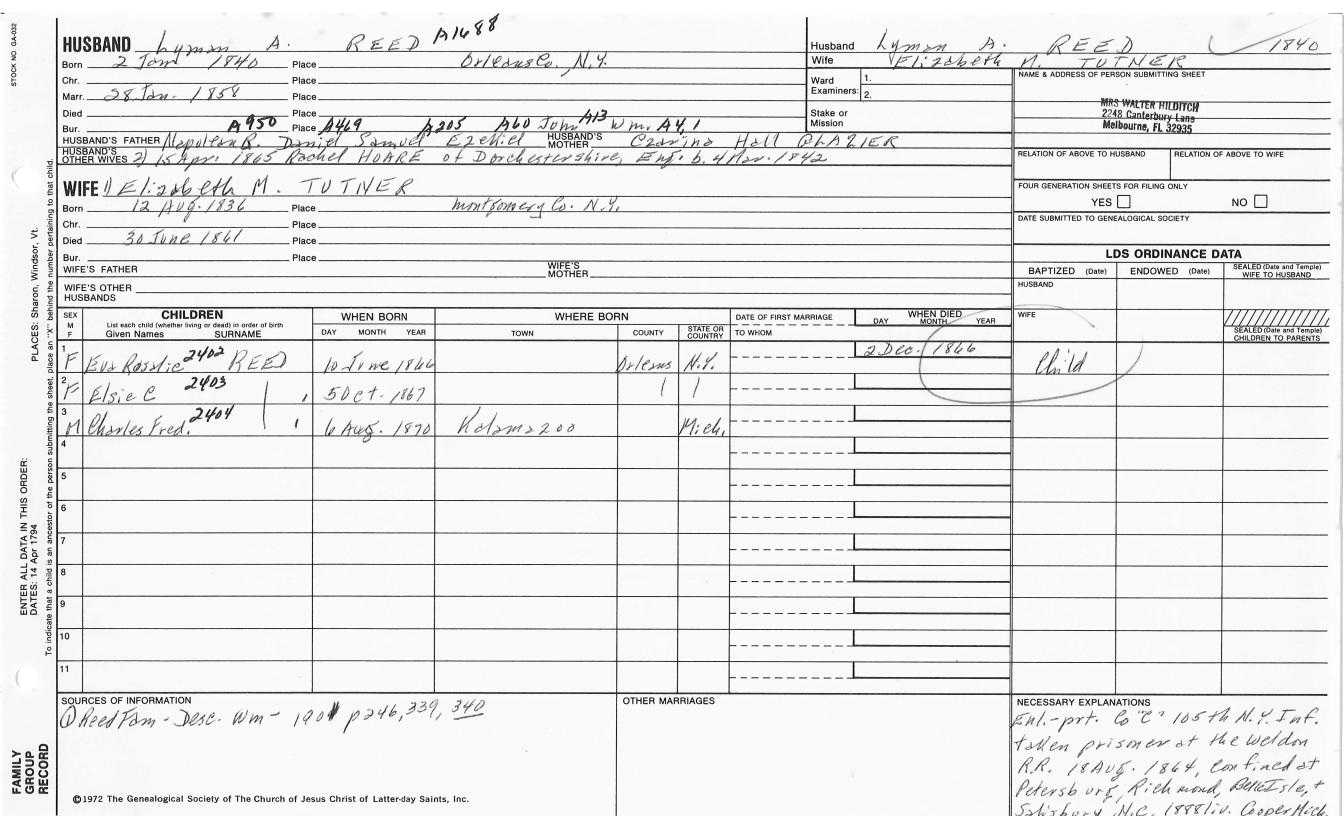 STOCK NO. GA-032
HUSBAND Lyman A. REED A1688
Born 2 Jan 1840 Place Orleans Co., N.Y.
Chr. Place
Marr. 28 Jan. 1858 Place
Died Place
Bur. A950 Place A469 A205 A60 John A13 Wm. A4,1
HUSBAND'S FATHER Napoleon B. Daniel Samuel Ezekiel HUSBAND'S MOTHER Czarina Hall GLAZIER
HUSBAND'S OTHER WIVES 2) 15 Apr. 1865 Rachel HOARE of Dorchestershire, Eng. b. 4 Mar. 1842
WIFE 1) Elizabeth M. TUTNER
Born 12 Aug. 1836 Place Montgomery Co. N.Y.
Chr. Place
Died 30 June 1861 Place
Bur. Place
WIFE'S FATHER WIFE'S MOTHER
WIFE'S OTHER HUSBANDS
Husband Lyman A. REED 1840
Wife Elizabeth M. TUTNER
Ward Examiners: 1.
2.
Stake or Mission
NAME & ADDRESS OF PERSON SUBMITTING SHEET
MRS WALTER HILDITCH
2248 Canterbury Lane
Melbourne, FL 32935
RELATION OF ABOVE TO HUSBAND RELATION OF ABOVE TO WIFE
FOUR GENERATION SHEETS FOR FILING ONLY
YES NO
DATE SUBMITTED TO GENEALOGICAL SOCIETY
LDS ORDINANCE DATA
BAPTIZED (Date) ENDOWED (Date) SEALED (Date and Temple) WIFE TO HUSBAND
HUSBAND
WIFE
SEALED (Date and Temple) CHILDREN TO PARENTS
SEX M F
CHILDREN
List each child (whether living or dead) in order of birth
Given Names SURNAME
WHEN BORN
DAY MONTH YEAR
WHERE BORN
TOWN COUNTY STATE OR COUNTRY
DATE OF FIRST MARRIAGE
TO WHOM
WHEN DIED
DAY MONTH YEAR
1 F Eva Rosalie 2402 REED 10 June 1866 Orleans N.Y. 2 Dec. 1866 Child
2 F Elsie C 2403 5 Oct. 1867
3 M Charles Fred. 2404 6 Aug. 1870 Kalamazoo Mich.
4
5
6
7
8
9
10
11
SOURCES OF INFORMATION
① Reed Fam - Desc. Wm - 1901 p246, 339, 340
OTHER MARRIAGES
NECESSARY EXPLANATIONS
Enl.-prt. Co "C" 105th N.Y. Inf.
taken prisoner at the Weldon
R.R. 18 Aug. 1864, confined at
Petersburg, Richmond, Belle Isle, +
Salisbury N.C. 1888 liv. Cooper Mich.
©1972 The Genealogical Society of The Church of Jesus Christ of Latter-day Saints, Inc.
PLACES: Sharon, Windsor, Vt.
ENTER ALL DATA IN THIS ORDER:
DATES: 14 Apr 1794
To indicate that a child is an ancestor of the person submitting the sheet, place an "X" behind the number pertaining to that child.
FAMILY
GROUP
RECORD